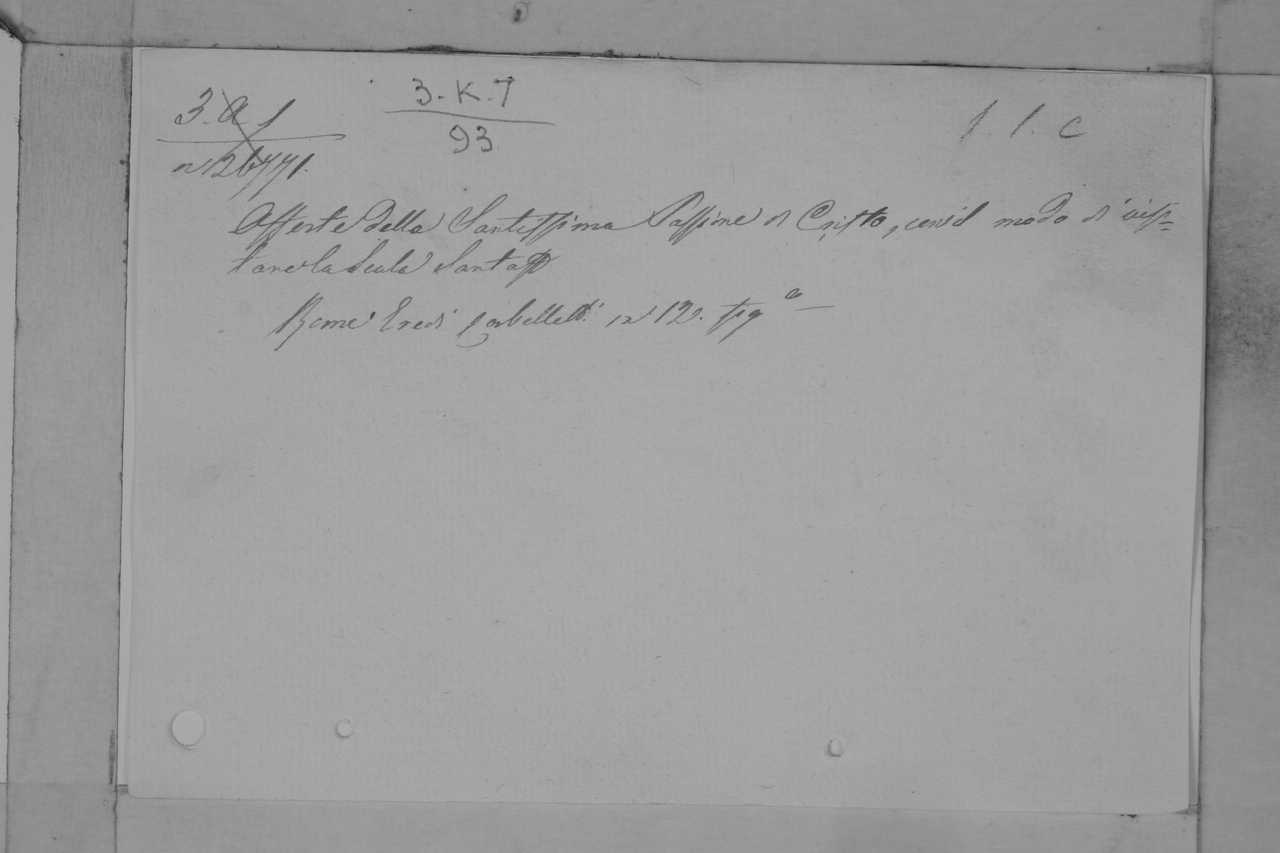 3. a 1
n 12 6 771.
3-K-7
93
1. 1. c
Offerte della Santissima Passione di Cristo, con il modo di visi=
tare la Scala Santa
Roma Eredi Corbelletti in 12. fig.a